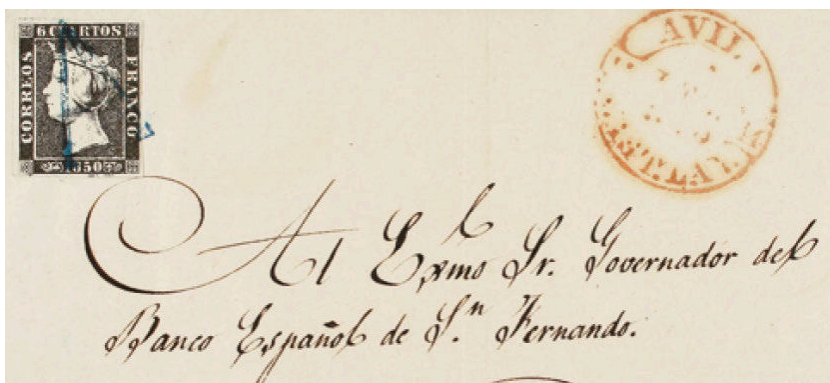 6 CUARTOS
CORREOS
FRANCO
1850
AVIL
Al Exmo Sr. Governador del
Banco Español de S.n Fernando.